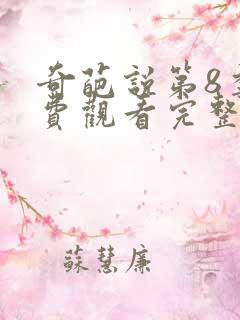 奇葩說第8季
費觀看完整
蘇慧廉